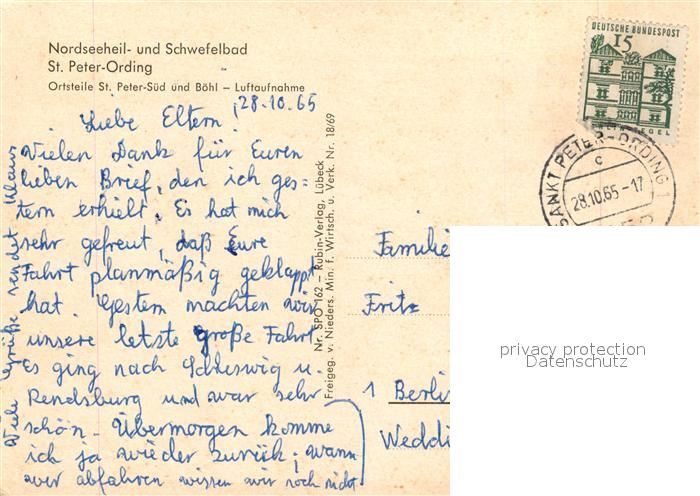 Nordseeheil- und Schwefelbad
St. Peter-Ording
Ortsteile St. Peter-Süd und Böhl – Luftaufnahme
28.10.65
Liebe Eltern!
Vielen Dank für Euren
lieben Brief, den ich ges-
tern erhielt. Es hat mich
sehr gefreut, daß Eure
Fahrt planmäßig geklappt
hat. Gestern machten wir
unsere letzte große Fahrt.
Es ging nach Schleswig u.
Rendsburg und war sehr
schön. Übermorgen komme
ich ja wieder zurück; wann
wir abfahren wissen wir noch nicht
Viele Grüße sendet Klaus
Nr. SPO 162 – Rubin-Verlag, Lübeck
Freigeg. v. Nieders. Min. f. Wirtsch. u. Verk. Nr. 18/69
DEUTSCHE BUNDESPOST
15
TEGEL
SANKT PETER-ORDING 1
c
28.10.65-17
Familie
Fritz
1 Berlin
Weddi
privacy protection
Datenschutz